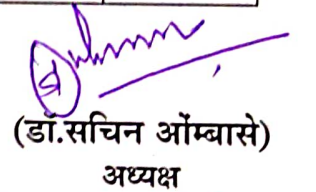 (डॉ.सचिन ओंम्बासे)
अध्यक्ष